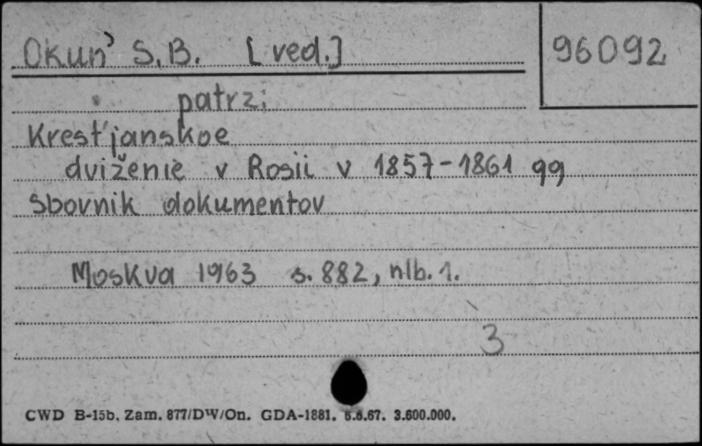 Okuń S.B. [ved.]
96092
patrz:
Krest'janskoe
dviženie v Rosii v 1857-1861 gg
sbornik dokumentov
Moskva 1963 s. 882, nlb. 1.
3
CWD B-15b. Zam. 877/DW/On. GDA-1881. 5.6.67. 3.600.000.